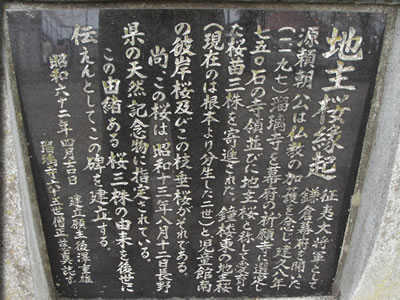 地主桜縁起
征夷大将軍として
鎌倉幕府を開いた
源頼朝公は仏教の加護を念じ建久八年
(一一九七)瑠璃寺を幕府の祈願寺に選定し
七五〇石の寺領並びに地主桜と称して愛でし
桜苗三株を寄進された。鐘楼東の地主桜
(現在のは根本より分生した二世)と児童館南
の彼岸桜及びこの枝垂桜がされである。
尚この桜は昭和十三年八月十二日長野
県の天然記念物に指定されている。
この由緒ある桜三株の由来を後世に
伝えんとして、この碑を建立する。
昭和六十二年四月吉日 建立願主後澤重雄
瑠璃寺六十五世僧正 義真誌す